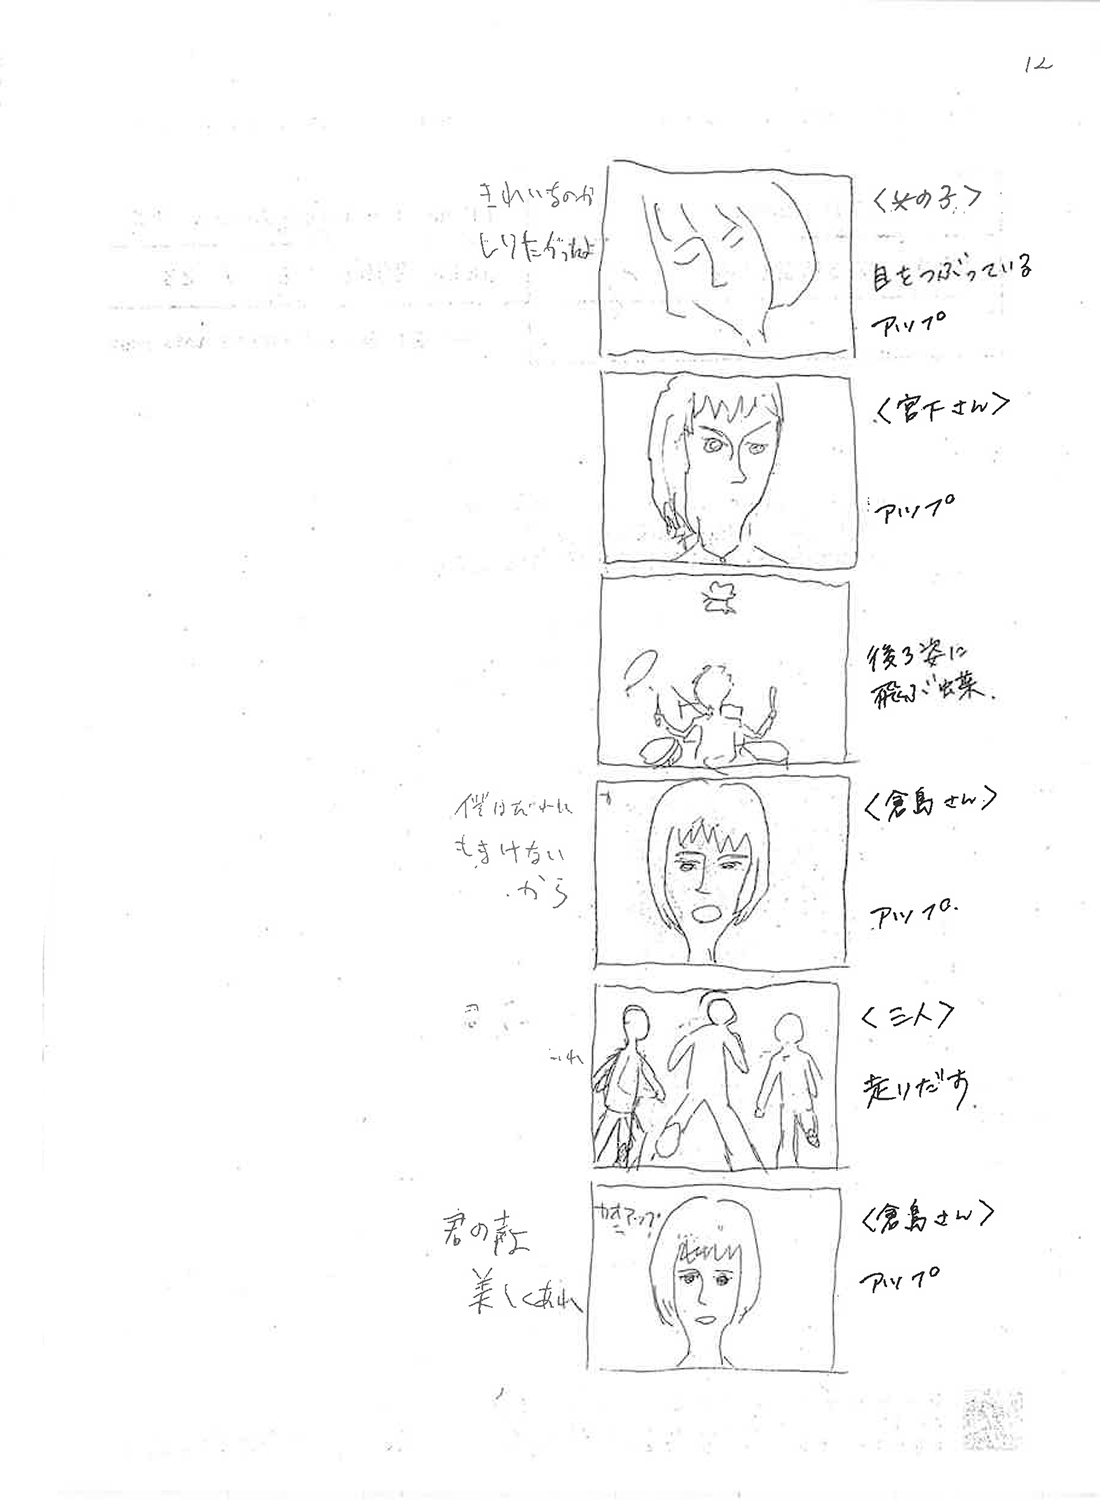 12
きれいなのか
しりたがってたよ
〈女の子〉
目をつぶっている
アップ
〈宮下さん〉
アップ
後ろ姿に
飛ぶ蝶
僕はだれに
もまけない
から
〈倉島さん〉
アップ
〈三人〉
走りだす
君の声よ
美しくあれ
カオアップ
〈倉島さん〉
アップ